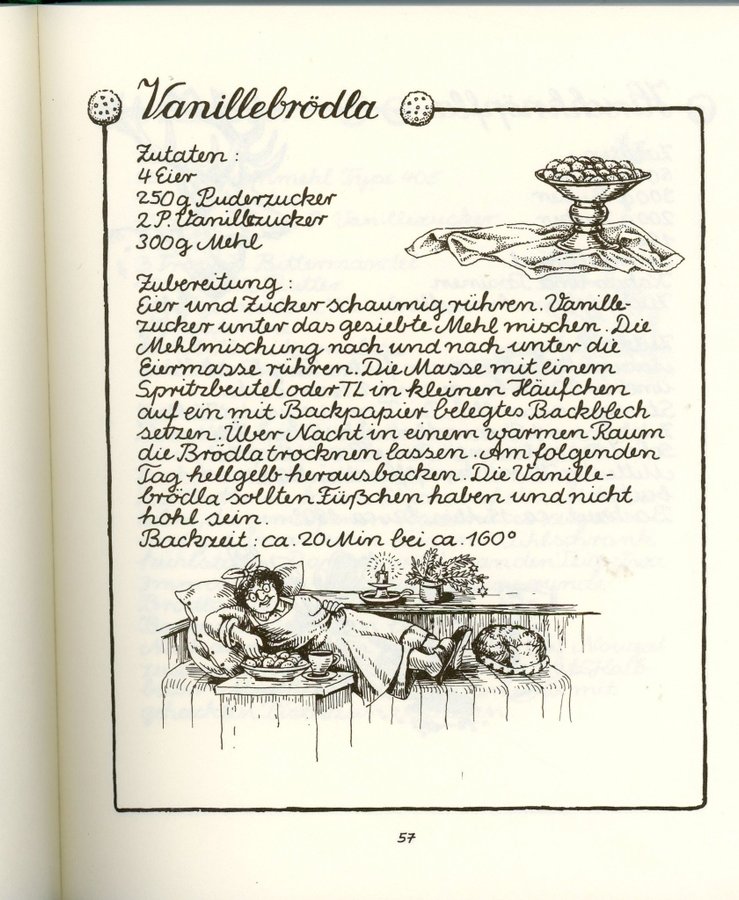 Vanillebrödla
Zutaten :
4 Eier
250g Puderzucker
2 P. Vanillezucker
300g Mehl
Zubereitung :
Eier und Zucker schaumig rühren. Vanille-
zucker unter das gesiebte Mehl mischen. Die
Mehlmischung nach und nach unter die
Eiermasse rühren. Die Masse mit einem
Spritzbeutel oder TL in kleinen Häufchen
auf ein mit Backpapier belegtes Backblech
setzen. Über Nacht in einem warmen Raum
die Brödla trocknen lassen. Am folgenden
Tag hellgelb herausbacken. Die Vanille-
brödla sollten Füßchen haben und nicht
hohl sein.
Backzeit : ca. 20 Min bei ca. 160°
57